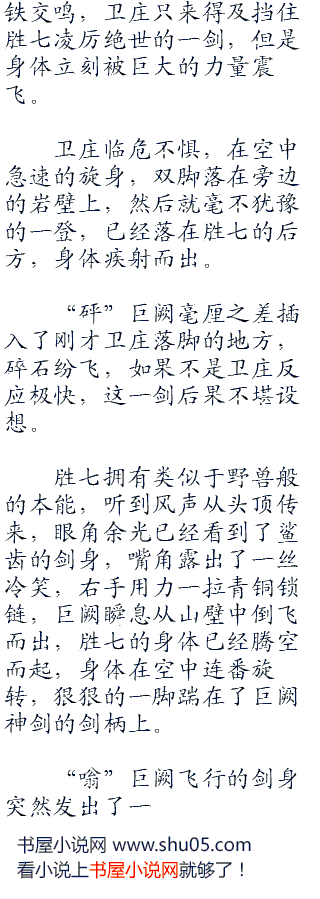 铁交鸣，卫庄只来得及挡住
胜七凌厉绝世的一剑，但是
身体立刻被巨大的力量震
飞。
卫庄临危不惧，在空中
急速的旋身，双脚落在旁边
的岩壁上，然后就毫不犹豫
的一登，已经落在胜七的后
方，身体疾射而出。
“砰”巨阙毫厘之差插
入了刚才卫庄落脚的地方，
碎石纷飞，如果不是卫庄反
应极快，这一剑后果不堪设
想。
胜七拥有类似于野兽般
的本能，听到风声从头顶传
来，眼角余光已经看到了鲨
齿的剑身，嘴角露出了一丝
冷笑，右手用力一拉青铜锁
链，巨阙瞬息从山壁中倒飞
而出，胜七的身体已经腾空
而起，身体在空中连番旋
转，狠狠的一脚踹在了巨阙
神剑的剑柄上。
“嗡”巨阙飞行的剑身
突然发出了一
书屋小说网 www.shu05.com
看小说上书屋小说网就够了！